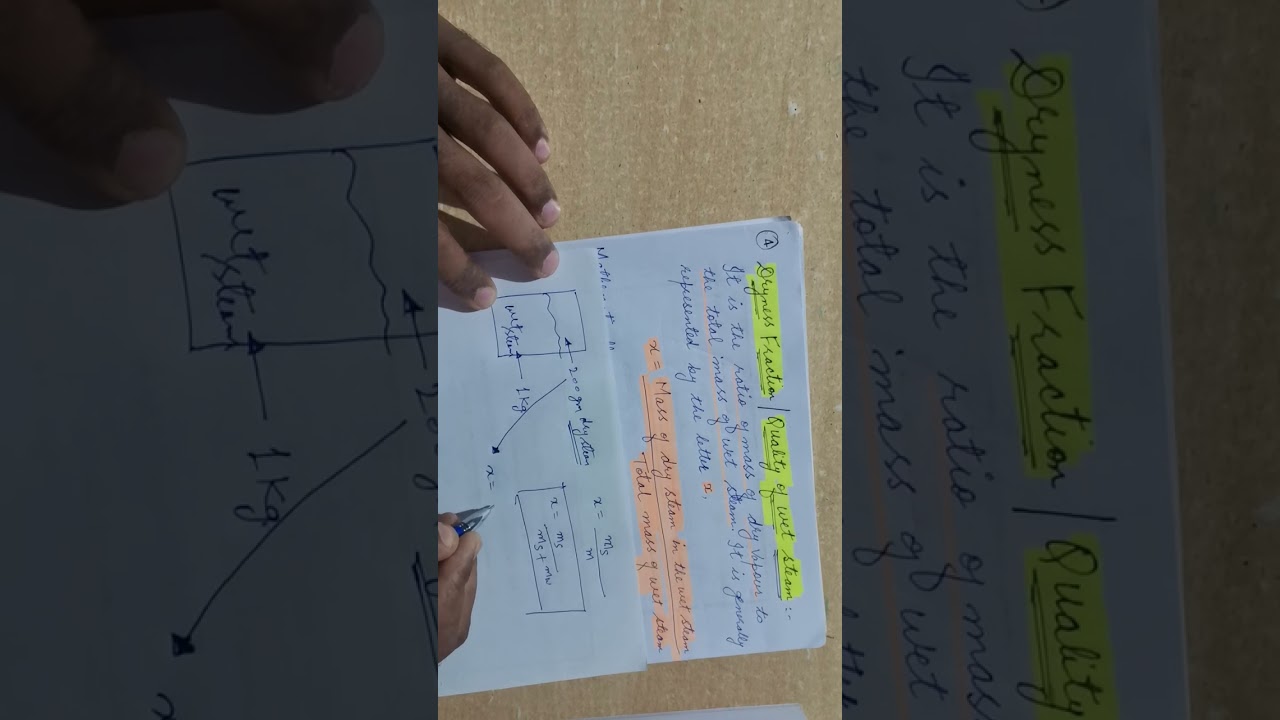 ④ Dryness Fraction / Quality of wet steam :-
It is the ratio of mass of dry vapour to
the total mass of wet steam. It is generally
represented by the letter x,
x = Mass of dry steam in the wet steam
Total mass of wet steam
x = ms
m
x = ms
ms + mw
200 gm dry steam
wet steam
1 kg
x =